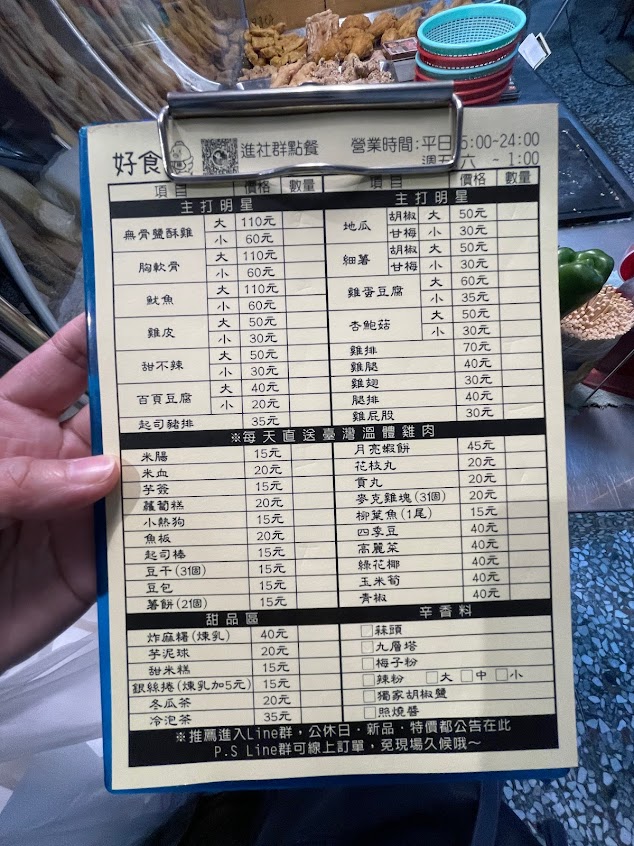 好食 進社群點餐 營業時間:平日 5:00~24:00
週五 六 ~ 1:00
項目 價格 數量 項目 價格 數量
主打明星 主打明星
無骨鹽酥雞 大 110元
小 60元
胸軟骨 大 110元
小 60元
魷魚 大 110元
小 60元
雞皮 大 50元
小 30元
甜不辣 大 50元
小 30元
百頁豆腐 大 40元
小 20元
起司豬排 35元
地瓜 胡椒 大 50元
甘梅 小 30元
細薯 胡椒 大 50元
甘梅 小 30元
雞蛋豆腐 大 60元
小 35元
杏鮑菇 大 50元
小 30元
雞排 70元
雞腿 40元
雞翅 30元
腿排 40元
雞屁股 30元
※每天直送臺灣溫體雞肉
米腸 15元
米血 20元
芋簽 15元
蘿蔔糕 20元
小熱狗 15元
魚板 20元
起司棒 15元
豆干(3個) 15元
豆包 15元
薯餅(2個) 15元
月亮蝦餅 45元
花枝丸 20元
貢丸 20元
麥克雞塊(3個) 20元
柳葉魚(1尾) 15元
四季豆 40元
高麗菜 40元
綠花椰 40元
玉米筍 40元
青椒 40元
甜品區
炸麻糬(煉乳) 40元
芋泥球 20元
甜米糕 15元
銀絲捲(煉乳加5元) 15元
冬瓜茶 20元
冷泡茶 35元
辛香料
蒜頭
九層塔
梅子粉
辣粉 大 中 小
獨家胡椒鹽
照燒醬
※推薦進入Line群,公休日·新品·特價都公告在此
P.S Line群可線上訂單,免現場久候哦~